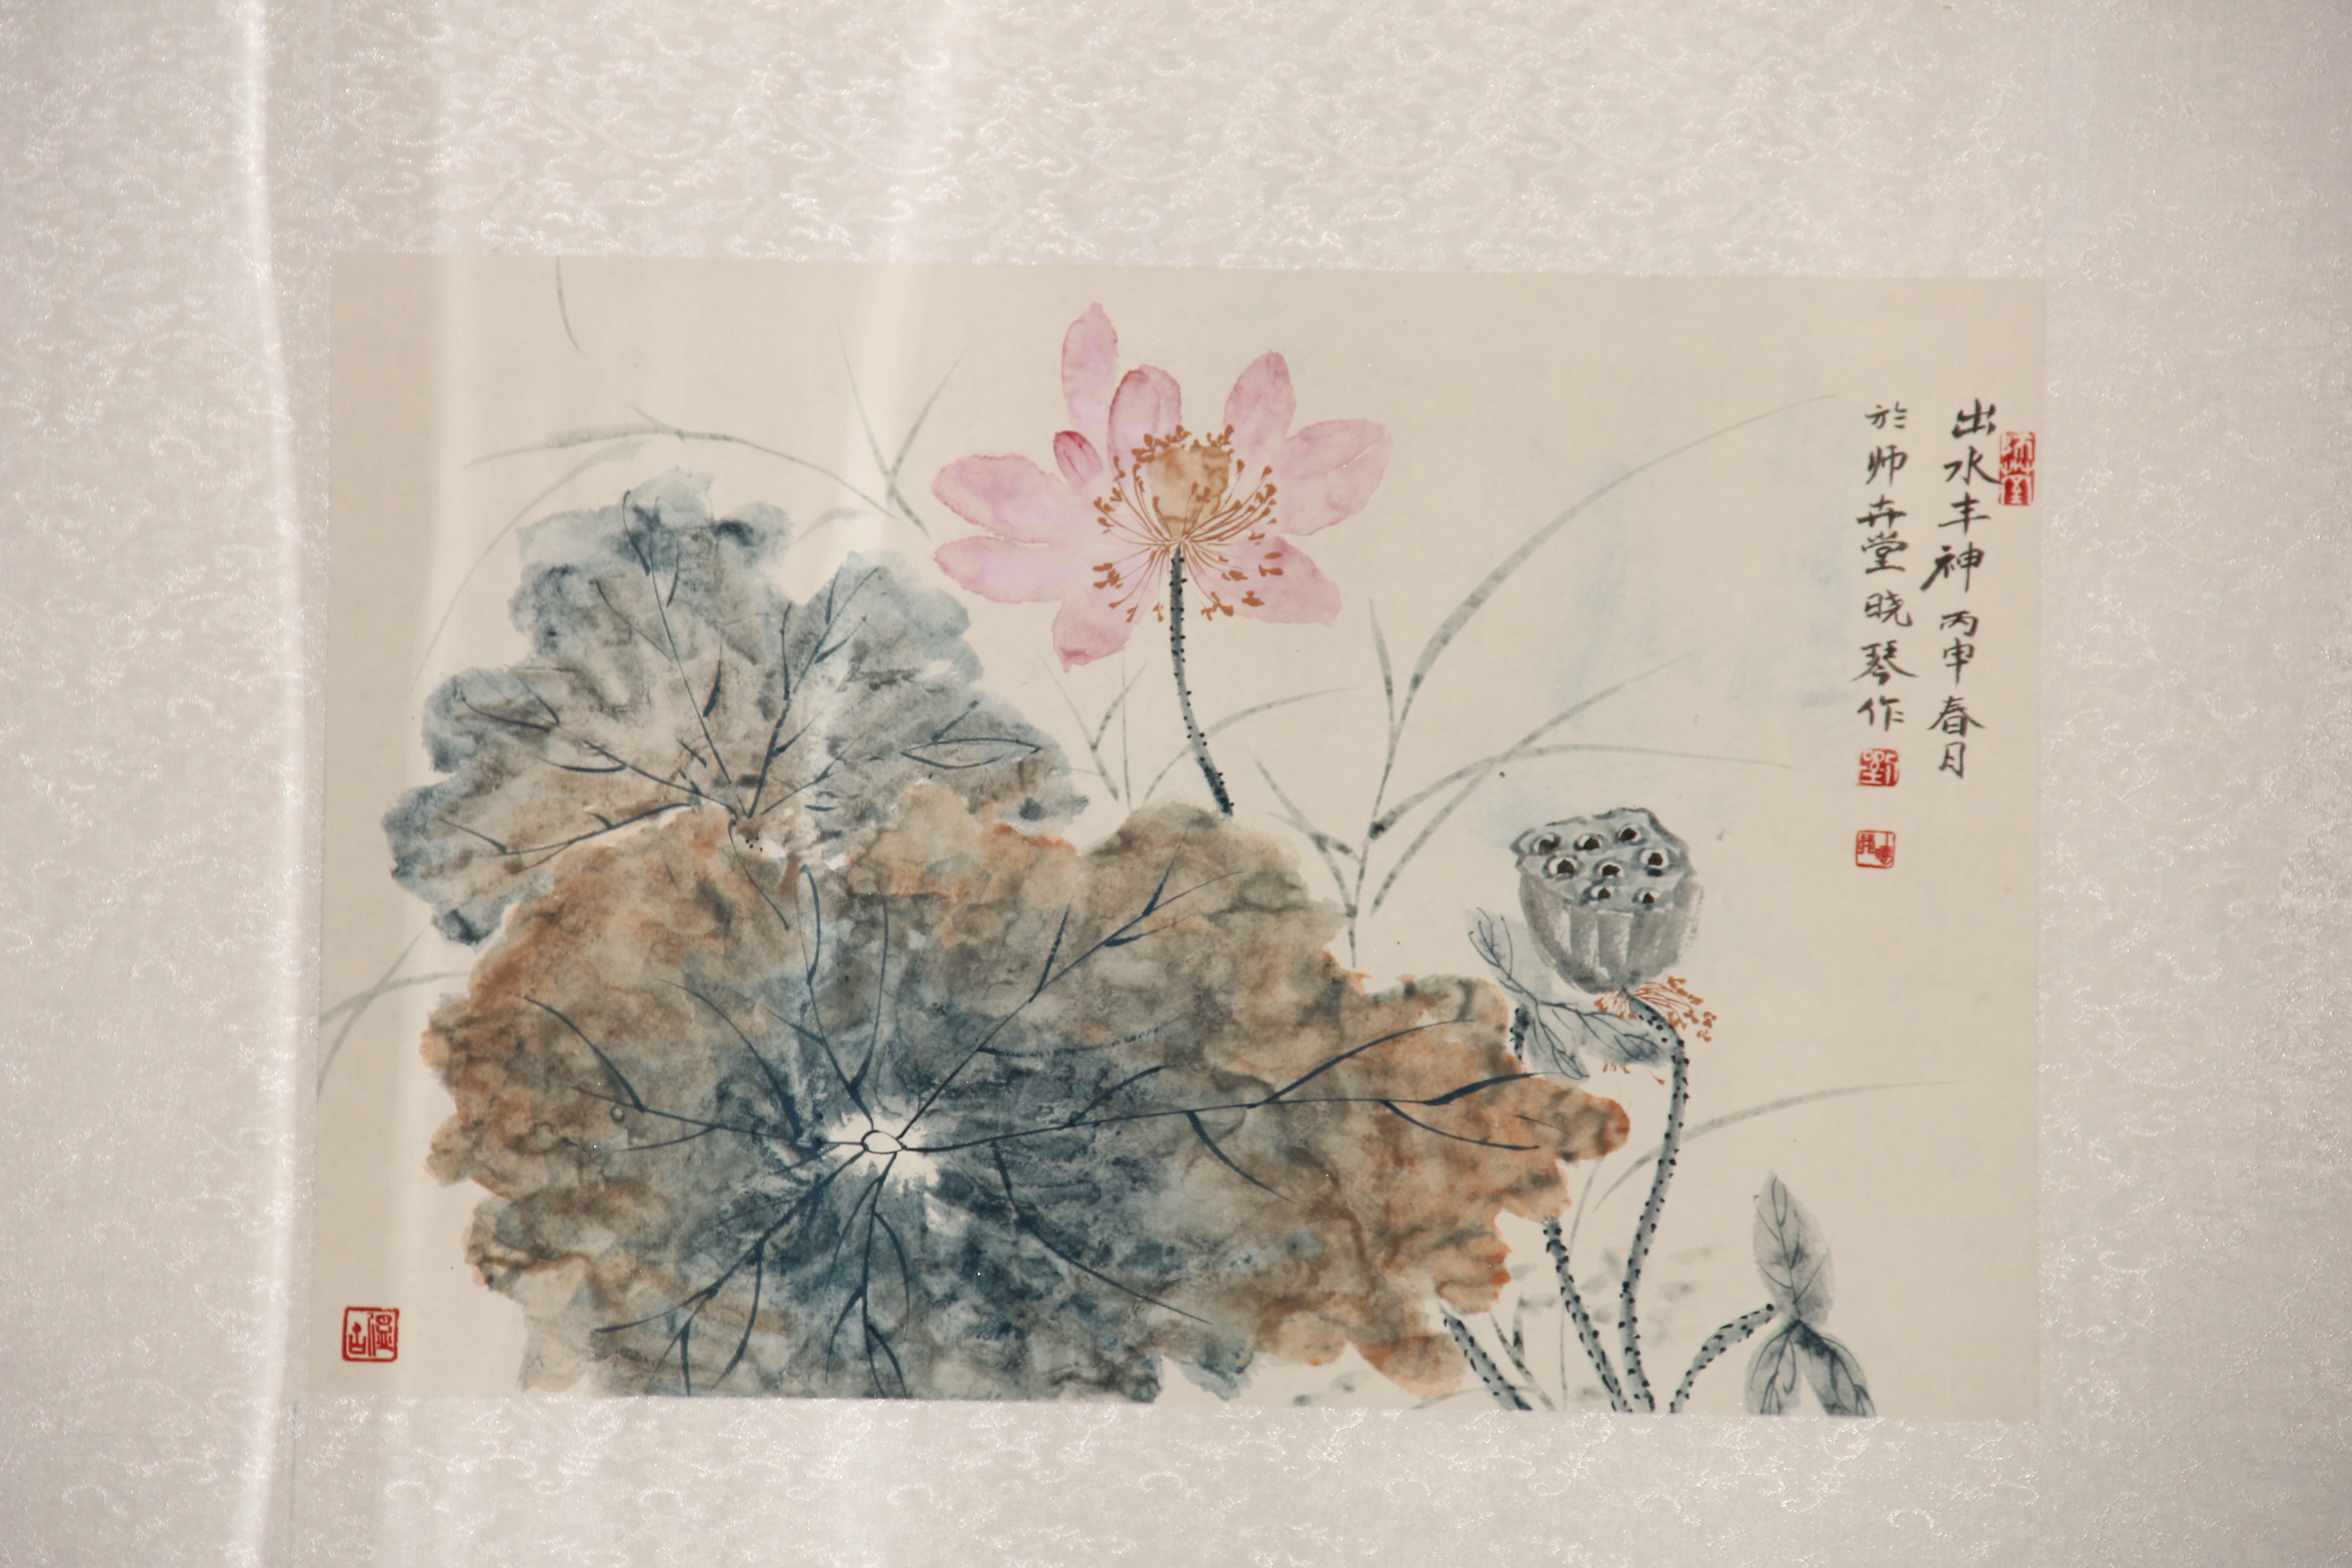 出水丰神 丙申春月
於师卉堂晓琴作
劉